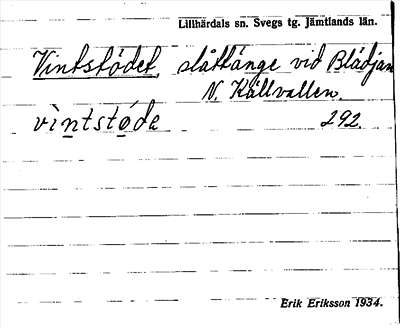 Lillhärdals sn. Svegs tg. Jämtlands län.
Vintstödet, slåttänge vid Blädjan
N. Källvallen.
vìntstøde 292.
Erik Eriksson 1934.